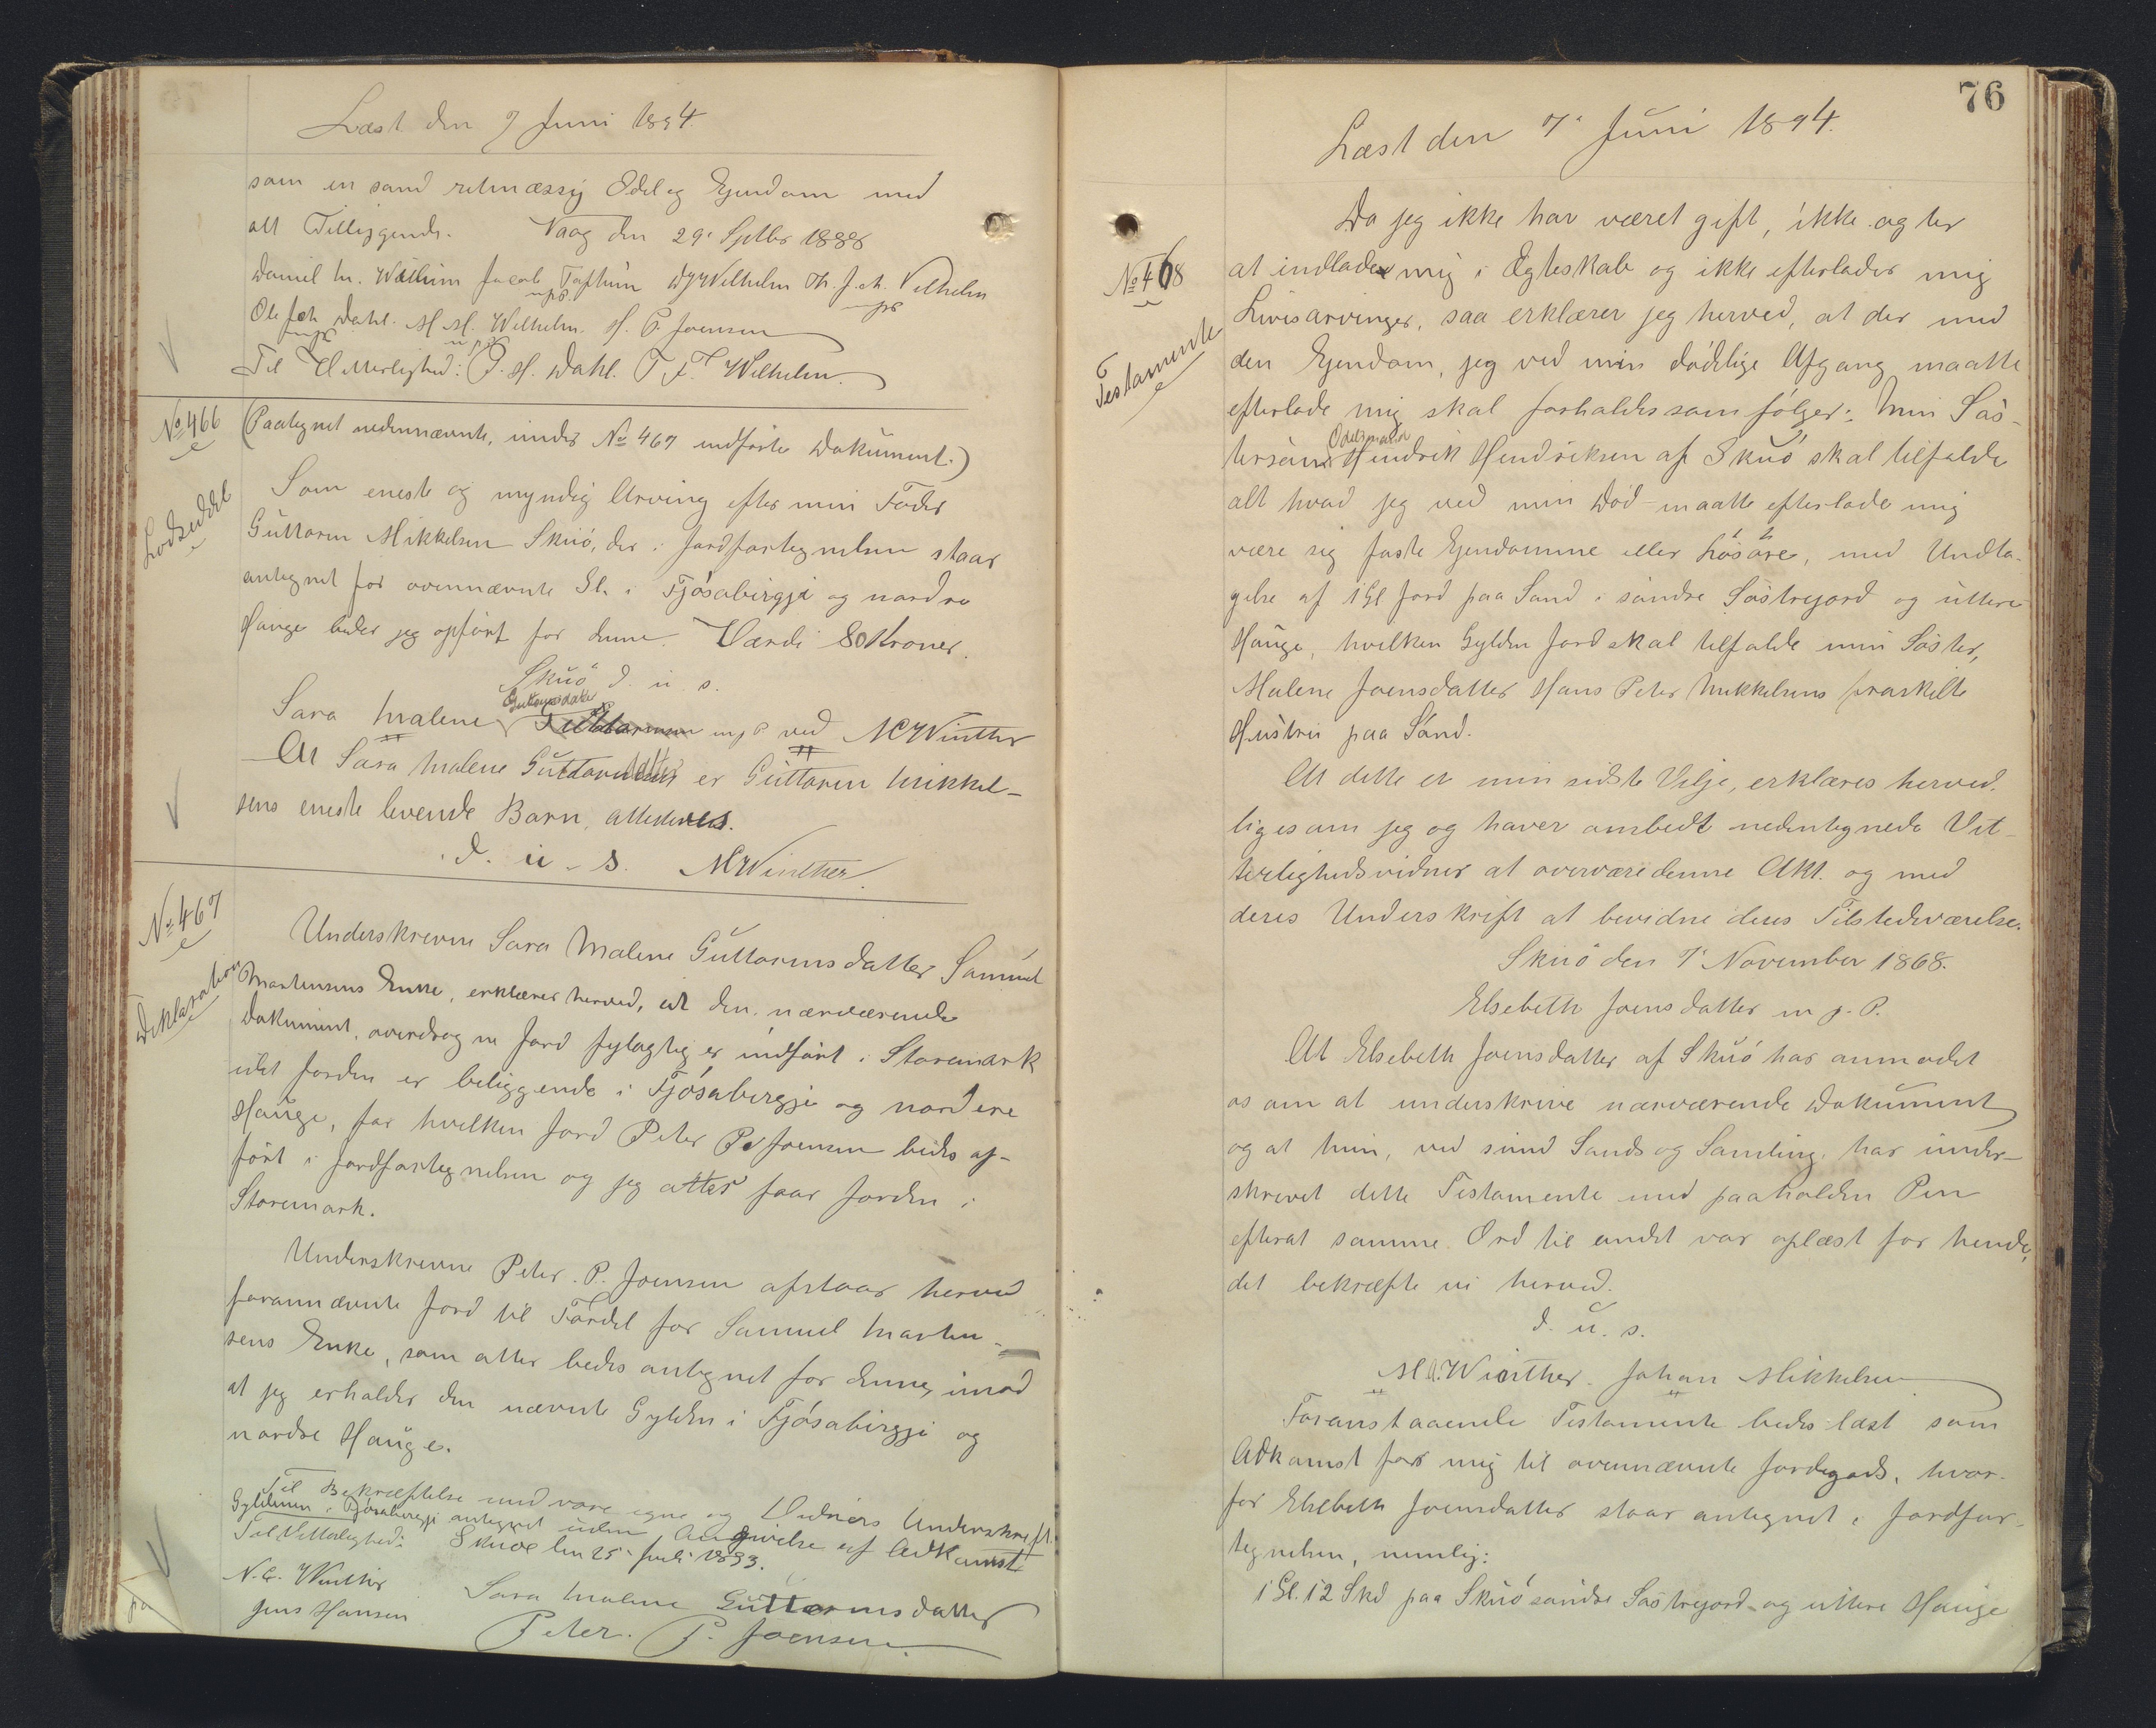 Læst den 7 Juni 1894.
som en sand retmæssig Odel og Ejendom med
alt Tilliggende. Vaag den 29. Septbr 1888
Daniel M. Jacob D J Wilhelm Th. J. Vilhelm
mps mps
Ole Joh Dahl. M. M. Wilhelm. H. P. Joensen
Til Vitterlighed: P. H. Dahl. T. F. Wilhelm.
No 466
Lodseddel
(Paategnet nedennævnte, under No 467 indførte Dokument.)
Som eneste og myndig Arving efter min Fader
Guttorm Mikkelsen Skuö, der i Jordfortegnelsen staar
antegnet for ovennævnte Gl. i Fjósabirgji og nordre
Hauge beder jeg opført for denne. Værdi 80 Kroner.
Skuö d. u. s.
Guttormsdatter
Sara Malene m p P ved M Winther
At Sara Malene Guttormsdatter er Guttorm Mikkel-
sens eneste levende Barn, attesteres.
d. u. s. M Winther.
No 467
Deklaration
Underskrevne Sara Malene Guttormsdatter, Samuel
Martensens Enke, erklærer herved, at den, nærværende
Dokument, overdragne Jord fejlagtig er indført i Storemark
idet Jorden er beliggende i Fjósabirgji og nordere
Hauge, for hvilken Jord Peter P Joensen bedes op-
ført i Jordfortegnelsen og jeg atter faar Jorden i
Storemark.
Underskrevne Peter. P. Joensen afstaar herved
forannævnte Jord til Fordel for Samuel Marten-
sens Enke, som atter bedes antegnet for denne, imod
at jeg erholder den nævnte Gylden i Fjósabirgji og
nordre Hauge.
Til Bekræftelse med vore egne og Vidners Underskrift.
Gyldenen i Fjósabirgji antegnet uden Angivelse af Adkomst
Til Vitterlighed: Skuoe den 25. Juli 1893.
N. C. Winther Sara Malene Guttormsdatter
Jens Hansen Peter. P. Joensen.
76
Læst den 7. Juni 1894.
No 468
Testamente
Da jeg ikke har været gift, ikke agter
at indlade mig i Ægteskab og ikke efterlader mig
Livsarvinger, saa erklærer jeg herved, at der med
den Ejendom, jeg ved min dødelige Afgang maatte
efterlade mig skal forholdes som følger: Min Søs-
Odelsmand
tersøn Hendrik Hendriksen af Skuö skal tilfalde
alt hvad jeg ved min Død maatte efterlade mig
være sig faste Ejendomme eller Løsøre, med Undta-
gelse af 1 Gl Jord paa Sand i søndre Søstrejord og uttere
Hauge, hvilken Gylden Jord skal tilfalde min Søster,
Malene Joensdatter Hans Peter Mikkelsens fraskilte
Hustru paa Sand.
At dette er min sidste Vilje, erklæres herved.
ligesom jeg og haver ombedt nedentegnede Vit-
terlighedsvidner at overvære denne Akt. og med
deres Underskrift at bevidne deres Tilstedeværelse.
Skuö den 7. November 1868.
Elsebeth Joensdatter m p. P.
At Elsebeth Joensdatter af Skuö har anmodet
os om at underskrive nærværende Dokument
og at hun, ved sund Sands og Samling, har under-
skrevet dette Testamente med paaholden Pen
efterat samme Ord til andet var oplæst for hende,
det bekræfte vi herved.
d. u. s.
M. Winther. Johan Mikkelsen
Foranstaaende Testamente bedes læst som
Adkomst for mig til ovennævnte Jordegods, hvor-
for Elsebeth Joensdatter staar antegnet i Jordfor-
tegnelsen, nemlig:
1 Gl. 12 Skd paa Skuö søndre Søstrejord og uttere Hauge